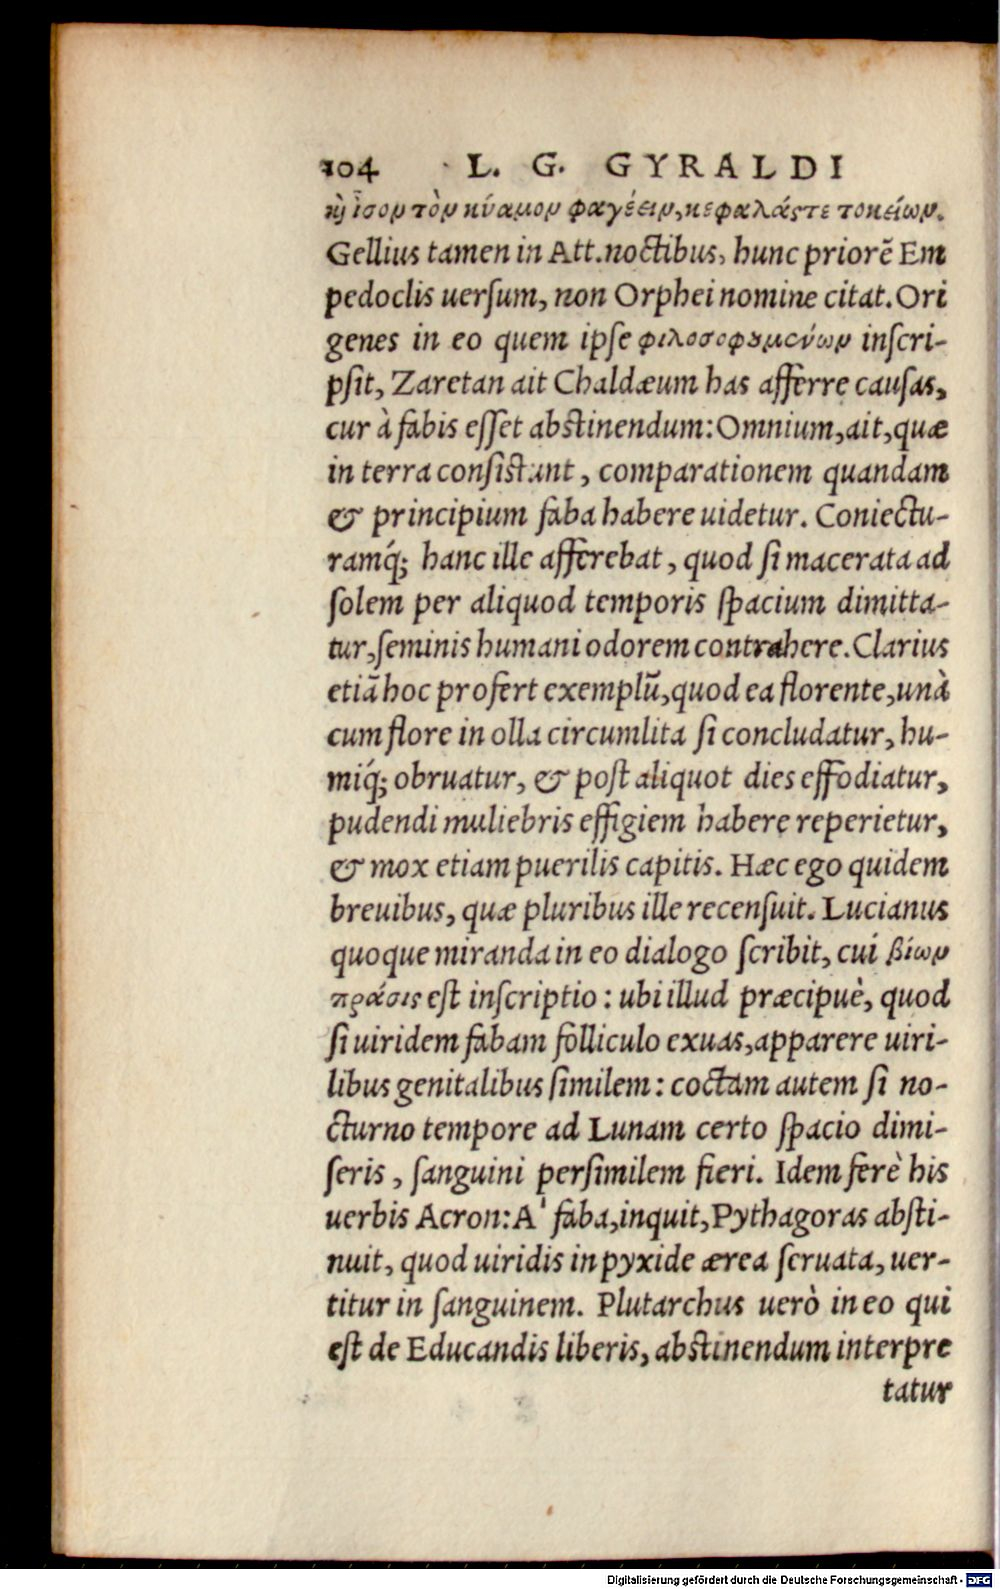 104 L. G. GYRALDI
κὴ ἶσον τὸν κύαμον φαγέειν, κεφαλάςτε τοκείων.
Gellius tamen in Att. noctibus, hunc priorẽ Em
pedoclis uerſum, non Orphei nomine citat. Ori
genes in eo quem ipſe φιλοσοφȣμενων inſcri-
pſit, Zaretan ait Chaldæum has afferre cauſas,
cur à fabis eſſet abstinendum: Omnium, ait, quæ
in terra consistunt, comparationem quandam
& principium faba habere uidetur. Coniectu-
ramq́; hanc ille afferebat, quod ſi macerata ad
ſolem per aliquod temporis ſpacium dimitta-
tur, ſeminis humani odorem contrahere. Clarius
etiã hoc profert exemplũ, quod ea florente, unà
cum flore in olla circumlita ſi concludatur, hu-
miq́; obruatur, & poſt aliquot dies effodiatur,
pudendi muliebris effigiem habere reperietur,
& mox etiam puerilis capitis. Hæc ego quidem
breuibus, quæ pluribus ille recenſuit. Lucianus
quoque miranda in eo dialogo ſcribit, cui βίων
πράσις est inſcriptio: ubi illud præcipuè, quod
ſi uiridem fabam folliculo exuas, apparere uiri-
libus genitalibus ſimilem: coctam autem ſi no-
cturno tempore ad Lunam certo ſpacio dimi-
ſeris, ſanguini perſimilem fieri. Idem ferè his
uerbis Acron: A' faba, inquit, Pythagoras abſti-
nuit, quod uiridis in pyxide ærea ſeruata, uer-
titur in ſanguinem. Plutarchus uerò in eo qui
eſt de Educandis liberis, abstinendum interpre
tatur
Digitalisierung gefördert durch die Deutsche Forschungsgemeinschaft - DFG